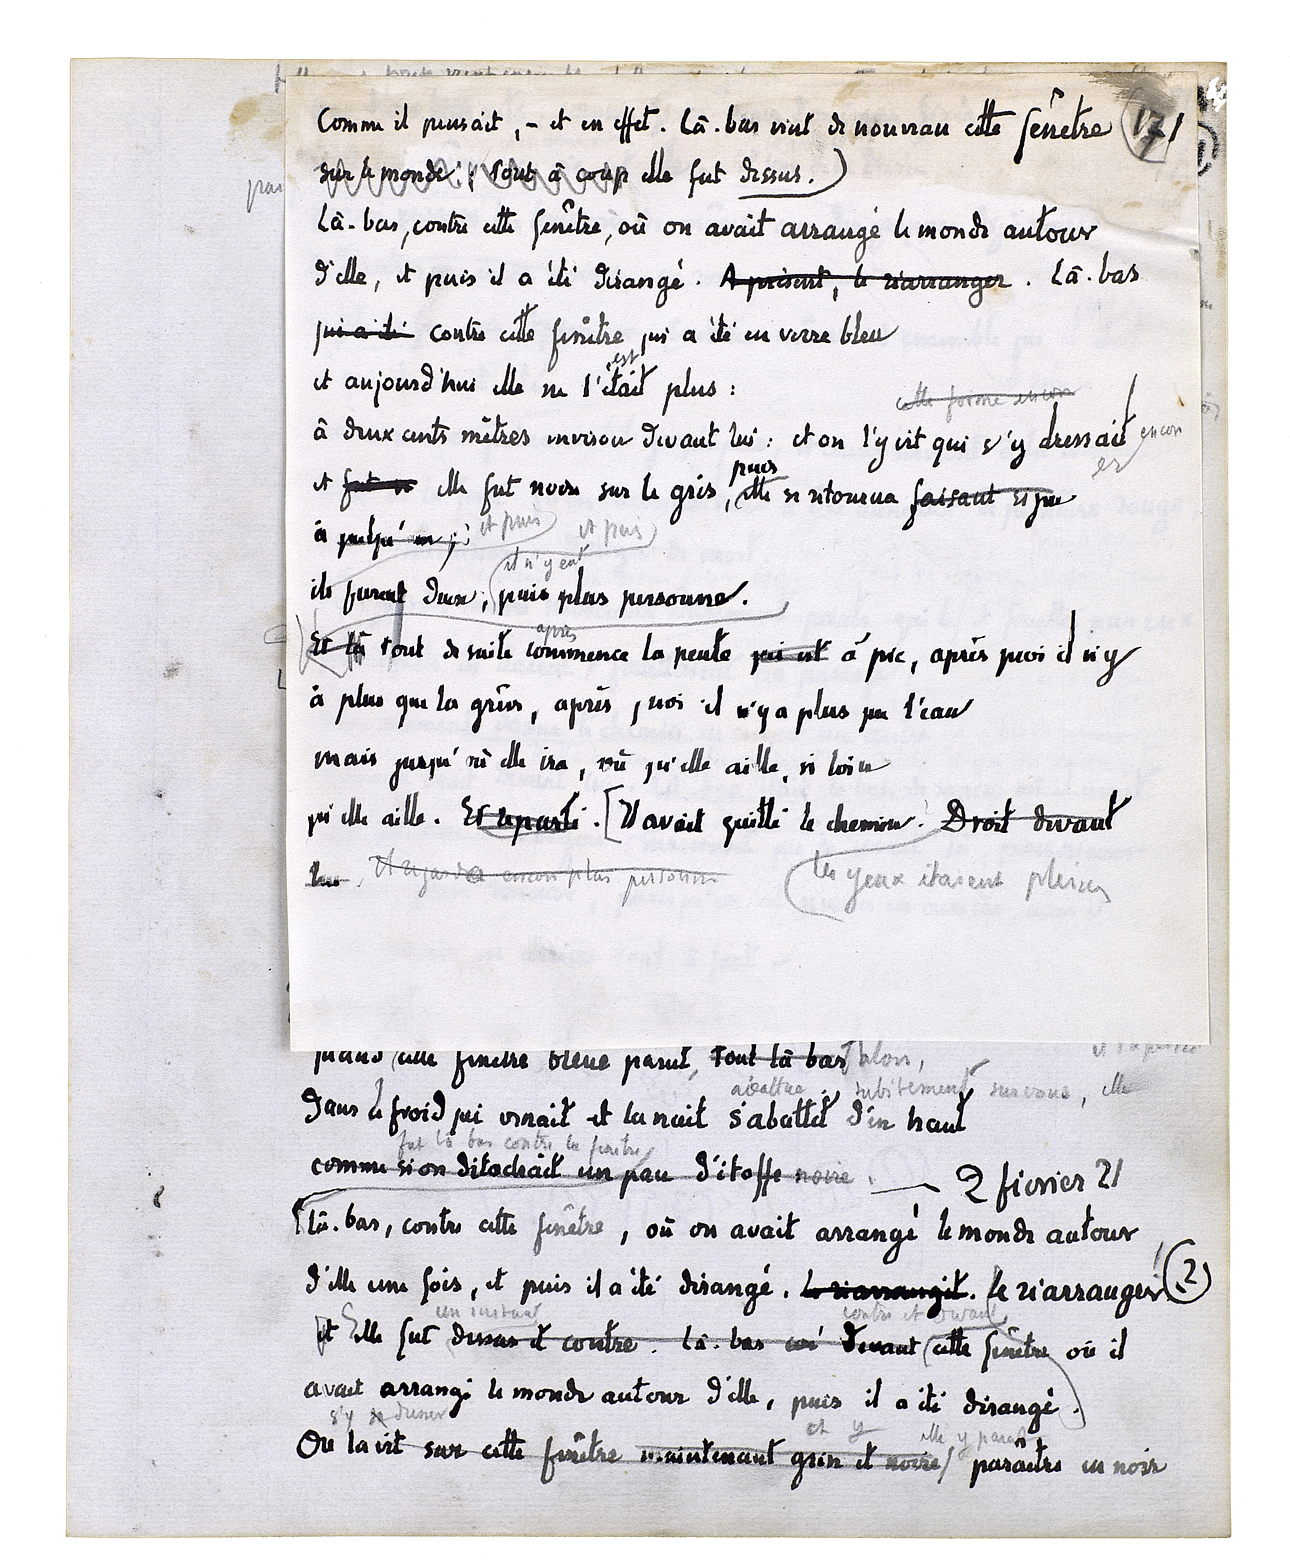 Comme il pensait, – et en effet. Là-bas vint de nouveau cette fenêtre 171
sur le monde ; tout à coup elle fut dessus.)
Là-bas, contre cette fenêtre, où on avait arrangé le monde autour
d'elle, et puis il a été dérangé. A présent, le réarranger. Là-bas
qui a été contre cette fenêtre qui a été en verre bleu
est
et aujourd'hui elle ne l'était plus :
cette forme encor
à deux cents mètres environ devant lui : et on l'y vit qui s'y dressait encor
puis
et elle fut noire sur le gris, elle se retourna faisant signe
à quelqu'un ; et puis et puis
il n'y eut
ils furent deux, puis plus personne.
après
Et là tout de suite commence la pente qui est à pic, après quoi il n'y
a plus que la grève, après quoi il n'y a plus que l'eau
mais jusqu'où elle ira, où qu'elle aille, si loin
qu'elle aille. Et repartit. [Il avait quitté le chemin. Droit devant
lui. Il regarda encor plus personne les yeux étaient pleins
quand cette fenêtre bleue parut, tout là bas alors,
subitement survenue, elle
Dans le froid qui venait et la nuit s'abattit d'en haut
fut là bas contre la fenêtre
comme si on détachait un pan d'étoffe noire. — 2 février 21
Là-bas, contre cette fenêtre, où on avait arrangé le monde autour
d'elle une fois, et puis il a été dérangé. Le réarrangeait. le réarranger! (2)
un instant contre et devant
et Elle fut dessus et contre. Là-bas devant cette fenêtre où il
avait arrangé le monde autour d'elle, puis il a été dérangé.
s'y dresser et y elle y parait
On la vit sur cette fenêtre maintenant grise et noire / paraître en noir